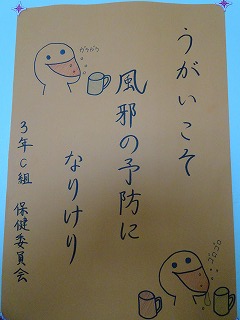 うがいこそ
風邪の予防に
なりけり
3年C組 保健委員会
ガラガラ
ゴロゴロ